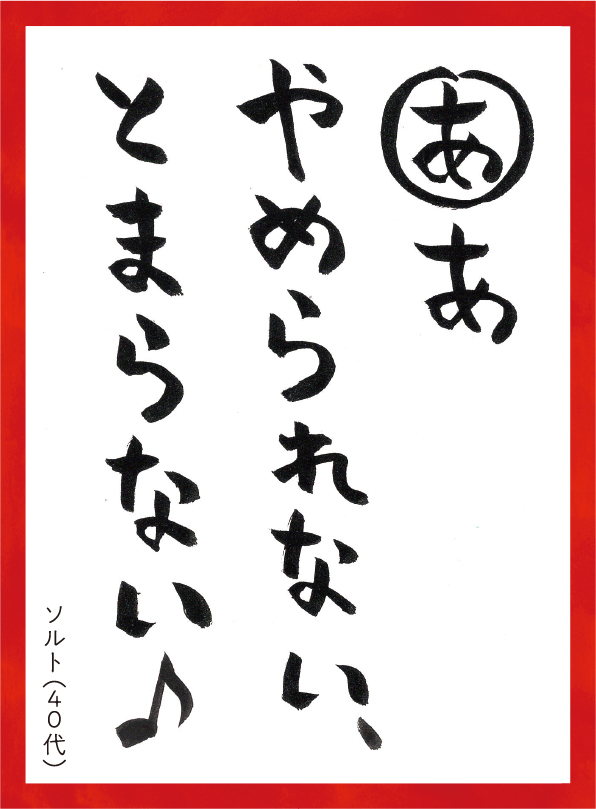 あ あ
やめられない、
とまらない♪
ソルト(40代)